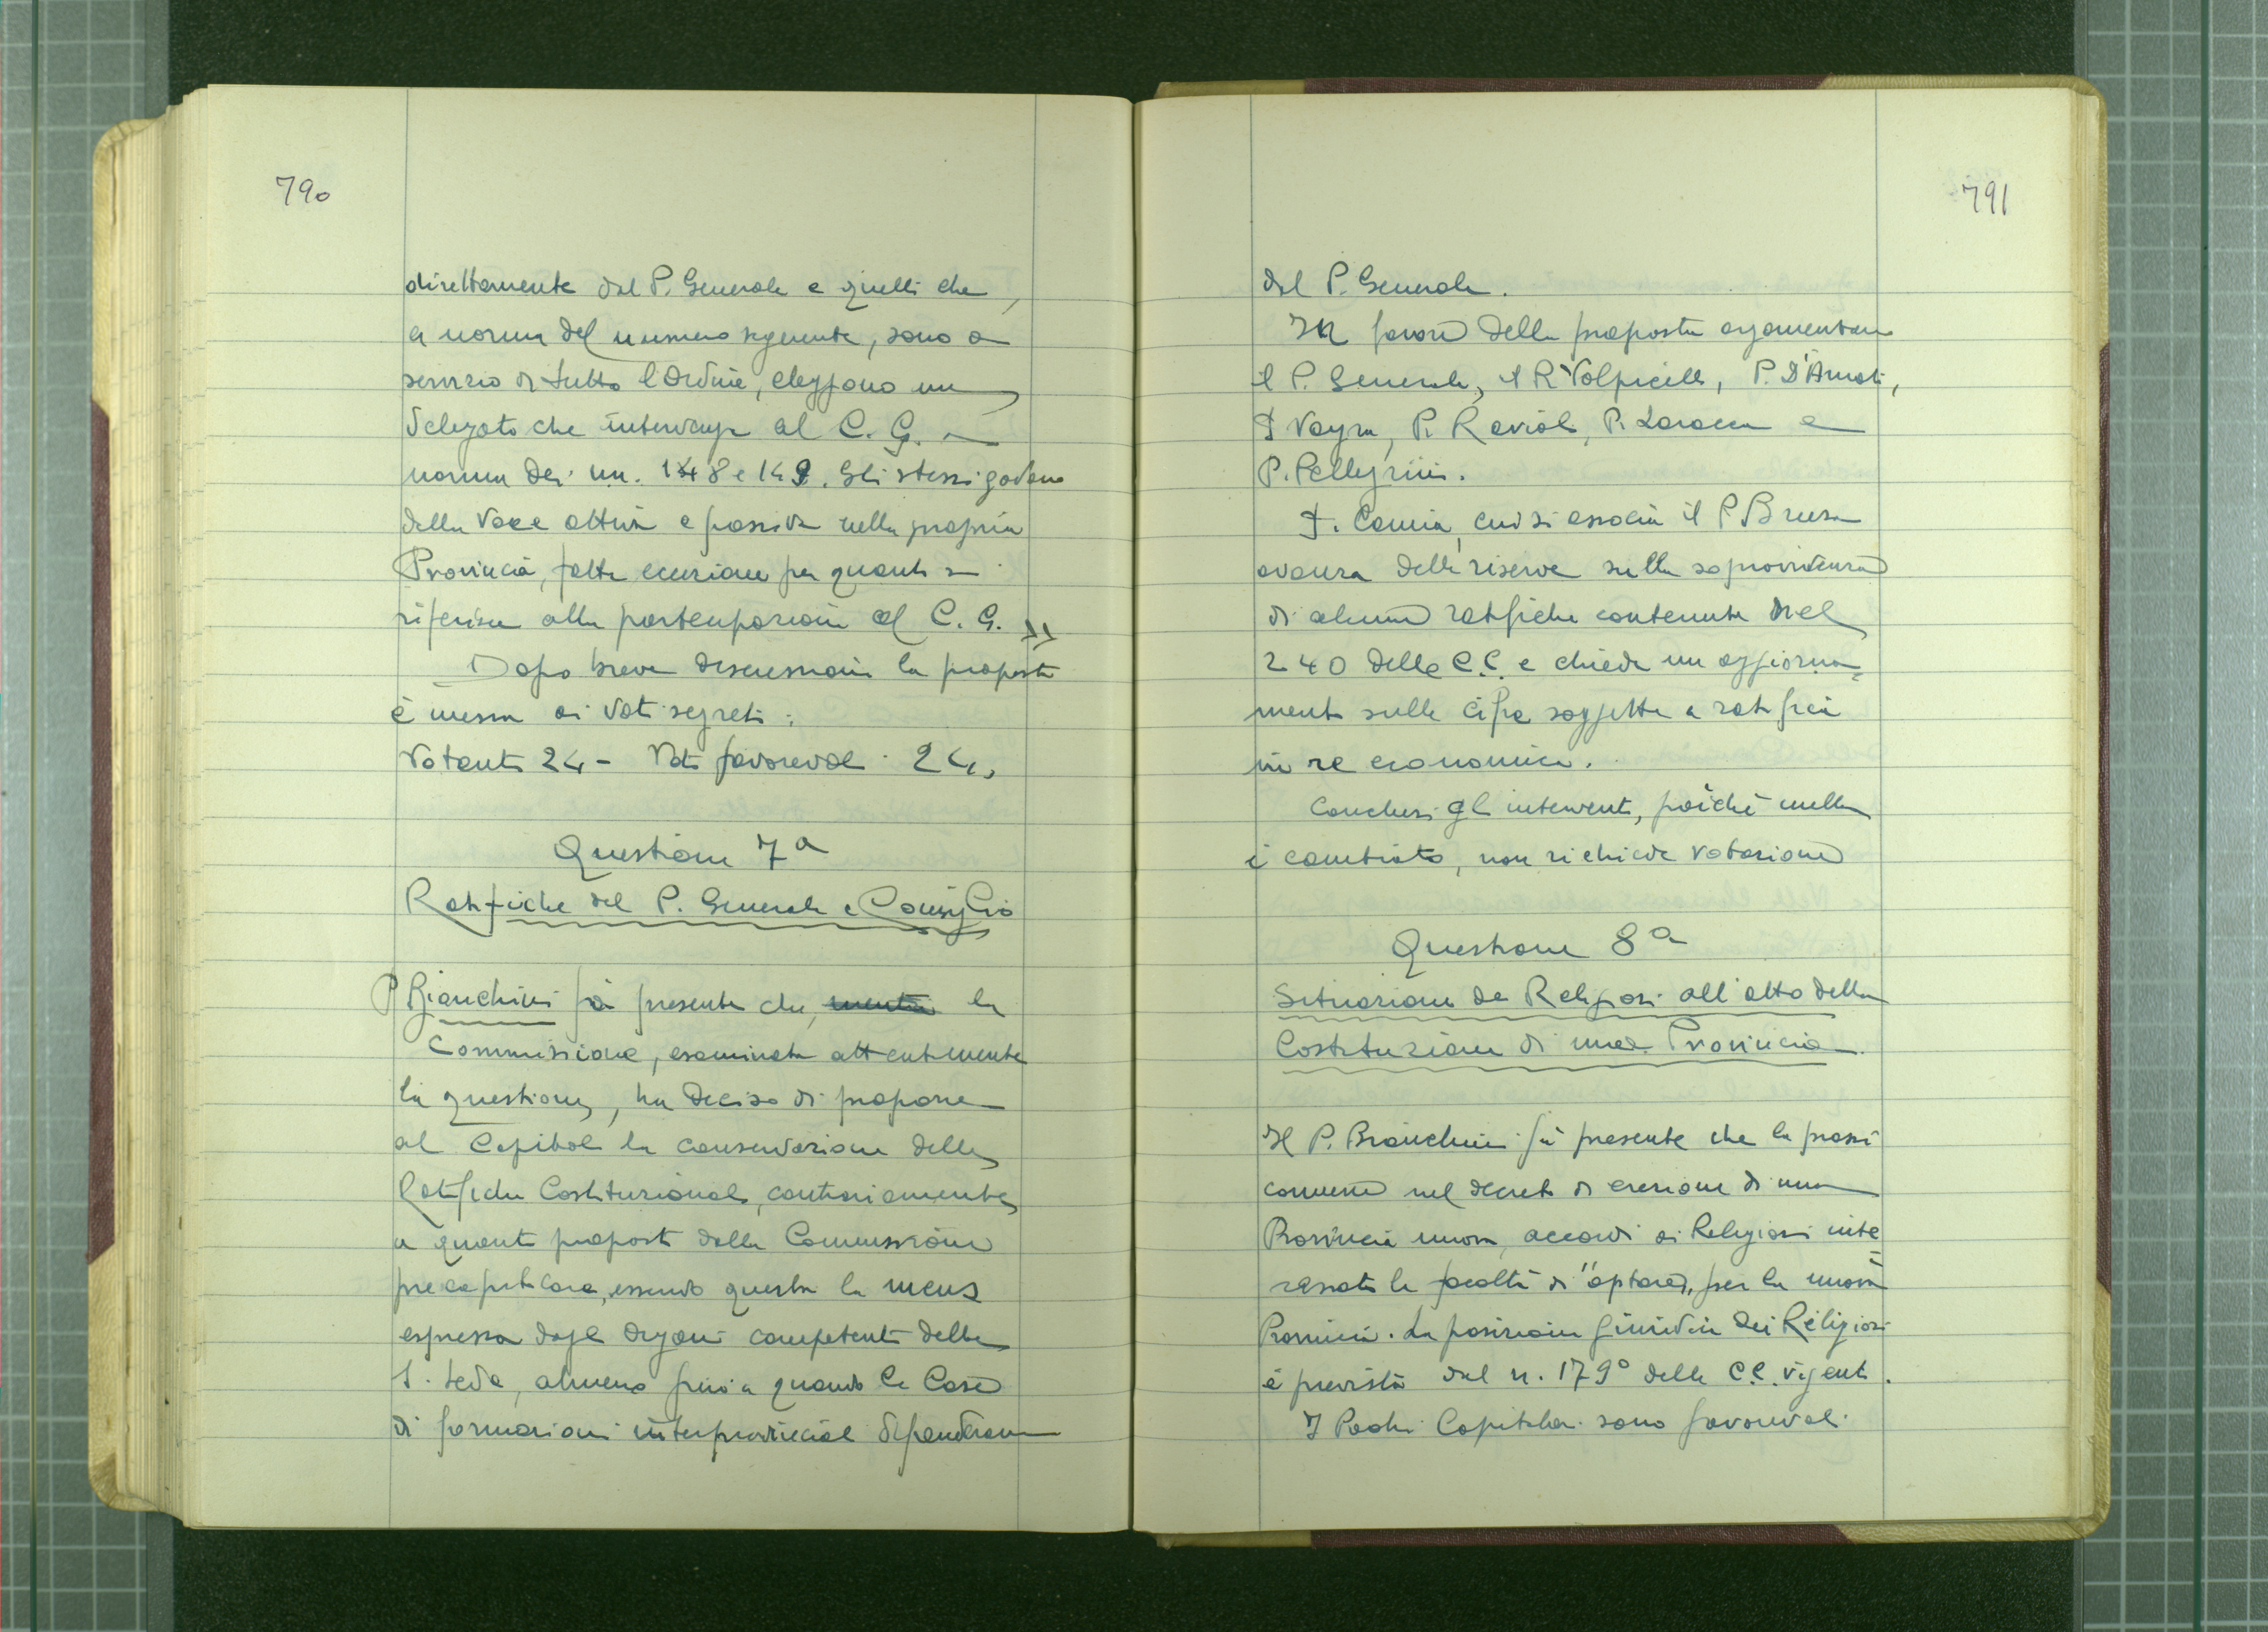 790
direttamente dal P. Generale e quelli che,
a norma del numero seguente, sono a
servizio di tutto l'Ordine, eleggono un
delegato che intervenga al C. G. a
norma dei nn. 148 e 149. Gli stessi godono
della voce attiva e passiva nella propria
Provincia, fatta eccezione per quanto si
riferisce alla partecipazione al C. G. »
Dopo breve discussione la proposta
è messa ai voti segreti:
Votanti 24 - Voti favorevoli 24.
Questione 7a
Ratifiche del P. Generale e Consiglio
P Bianchini fa presente che, mentre la
Commissione, esaminata attentamente
la questione, ha deciso di proporre
al Capitolo la conservazione delle
Ratifiche Costituzionali, contrariamente
a quanto proposto dalla Commissione
precapitolare, essendo questa la mens
espressa dagli Organi competenti della
S. Sede, almeno fino a quando le Case
di formazioni interprovinciali dipenderanno
791
dal P. Generale.
In favore della proposta argomentano
il P. Generale, il P. Volpicelli, P. D'Amati,
P. Vayra, P. Raviolo, P. Laracca e
P. Pellegrini.
P. Camia, cui si associa il P. Brusa
avanza delle riserve sulla sopravvivenza
di alcune ratifiche contenute nel
240 delle C.C. e chiede un aggiorna=
mento sulle cifre soggette a ratifica
in re economica.
Conclusi gli interventi, poiché nulla
è cambiato, non richiede votazione
Questione 8a
Situazione dei Religiosi all'atto della
Costituzione di una Provincia.
Il P. Bianchini fa presente che la prassi
comune nel decreto di erezione di una
Provincia nuova, accordi ai Religiosi inte=
ressati la facoltà di "optare" per la nuova
Provincia. La posizione giuridica dei Religiosi
è prevista dal n. 179° delle C.C. vigenti.
I Padri Capitolari sono favorevoli